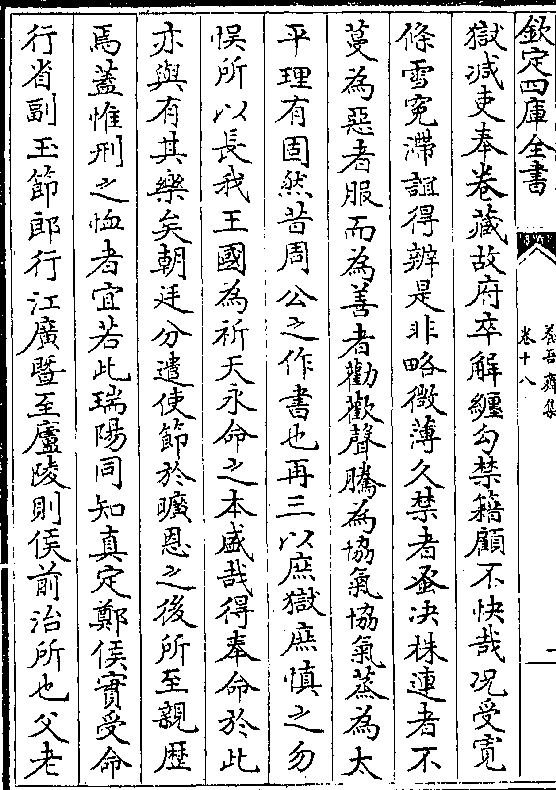 欽定四庫全書
養吾齋集
卷十八
獄减吏奉卷藏故府卒解纏勾禁籍顧不快哉况受寛
條雪寃滯誼得辨是非略微薄久禁者蚤决株連者不
蔓為惡者服而為善者勸歡聲騰為協氣協氣蒸為太
平理有固然昔周公之作書也再三以庶獄庶慎之勿
悞所以長我王國為祈天永命之本盛哉得奉命於此
亦與有其樂矣朝廷分遣使節於曠恩之後所至親歴
焉葢惟刑之恤者宜若此瑞陽同知真定鄭侯實受命
行省副玉節郎行江廣暨至廬陵則侯前治所也父老